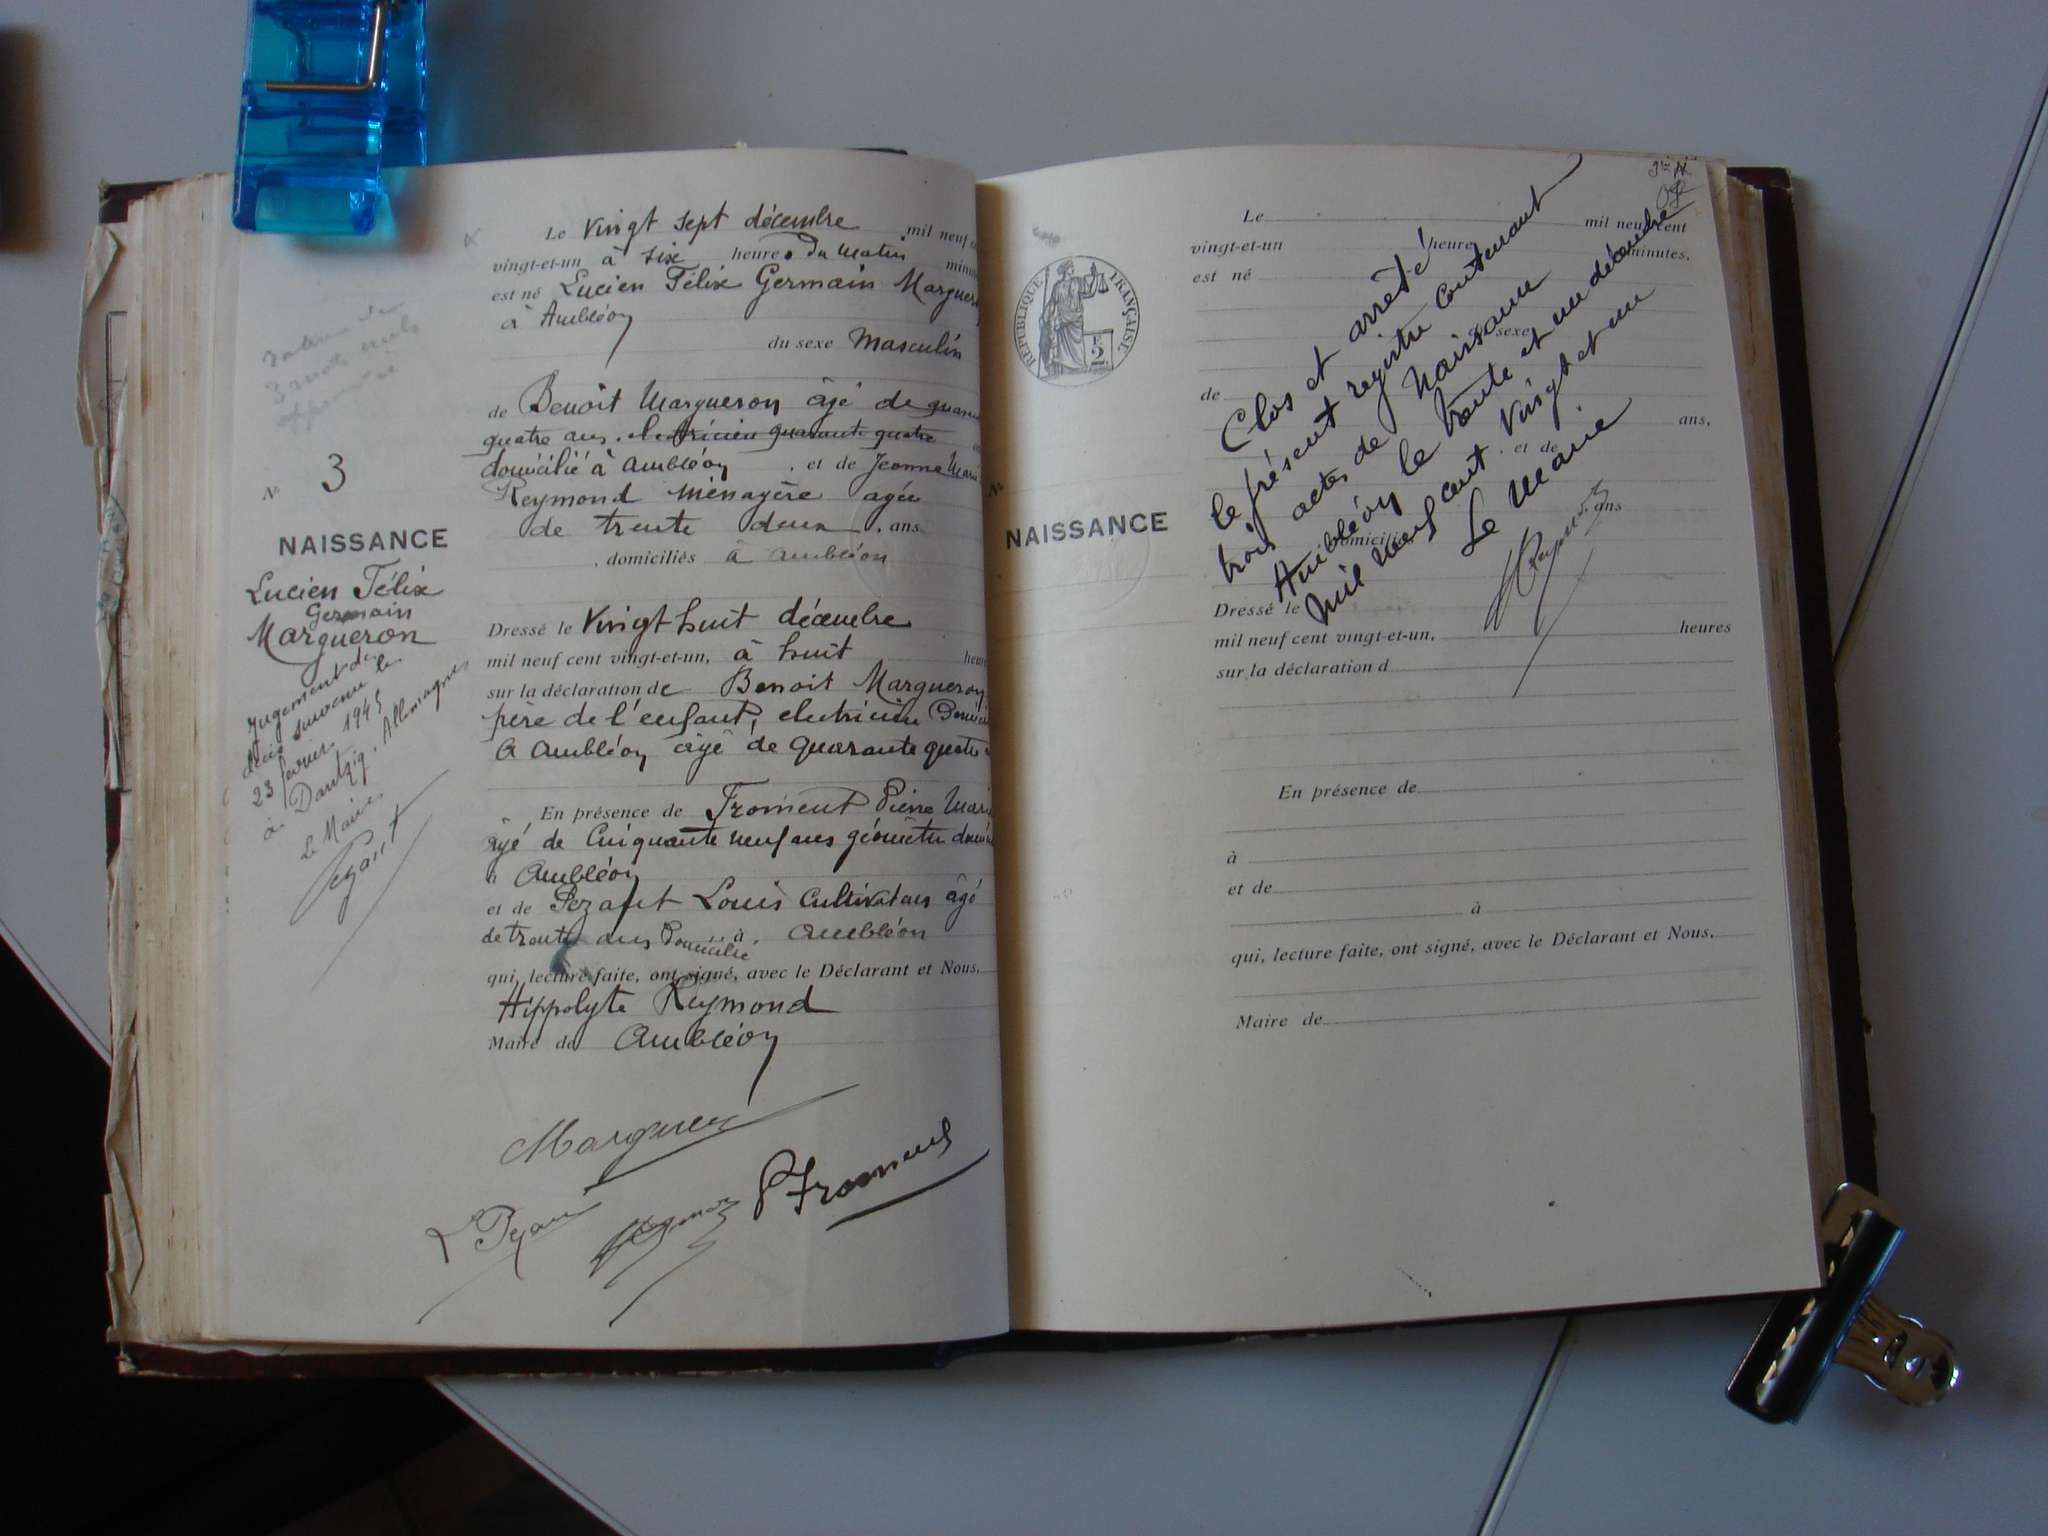 N° 3
NAISSANCE
Lucien Félix
Germain
Margueron
Jugement de
décès survenu le
23 février 1945
à Dantzig, Allemagne
Le Maire
Pezant
Le vingt sept décembre mil neuf
vingt-et-un à six heures du matin
est né Lucien Félix Germain Margueron
à Ambléon
du sexe Masculin
de Benoit Margueron âgé de
quatre ans. electricien quarante quatre
domicilié à Ambléon , et de Jeanne Marie
Reymond Ménagère agée
de trente deux , ans
, domiciliés à Ambléon
Dressé le Vingt huit décembre
mil neuf cent vingt-et-un, à huit heures
sur la déclaration de Benoit Margueron
père de l'enfant, electricien
à Ambléon âgé de quarante quatre
En présence de Froment Pierre Marie
âgé de Cinquante neuf ans géomètre
à Ambléon
et de Pezant Louis Cultivateur âgé
de trente ans domicilié à Ambléon
qui, lecture faite, ont signé, avec le Déclarant et Nous,
Hippolyte Reymond
Maire de Ambléon
Margueron
L Pezant
Reymond
P Froment
RÉPUBLIQUE FRANÇAISE
NAISSANCE
Le mil neuf cent
vingt-et-un heure minutes,
est né
du sexe
de
ans,
, et de
, ans
domiciliés
Dressé le
mil neuf cent vingt-et-un, heures
sur la déclaration d
En présence de
à
et de
à
qui, lecture faite, ont signé, avec le Déclarant et Nous,
Maire de
Clos et arrêté
le présent registre contenant
trois actes de Naissance
Ambléon le trente et un décembre
mil neuf cent vingt et un
Le Maire
Reymond